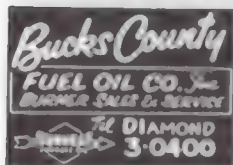 Bucks County
FUEL OIL CO. Inc
BURNER SALES & SERVICE
Tel DIAMOND
3-0400